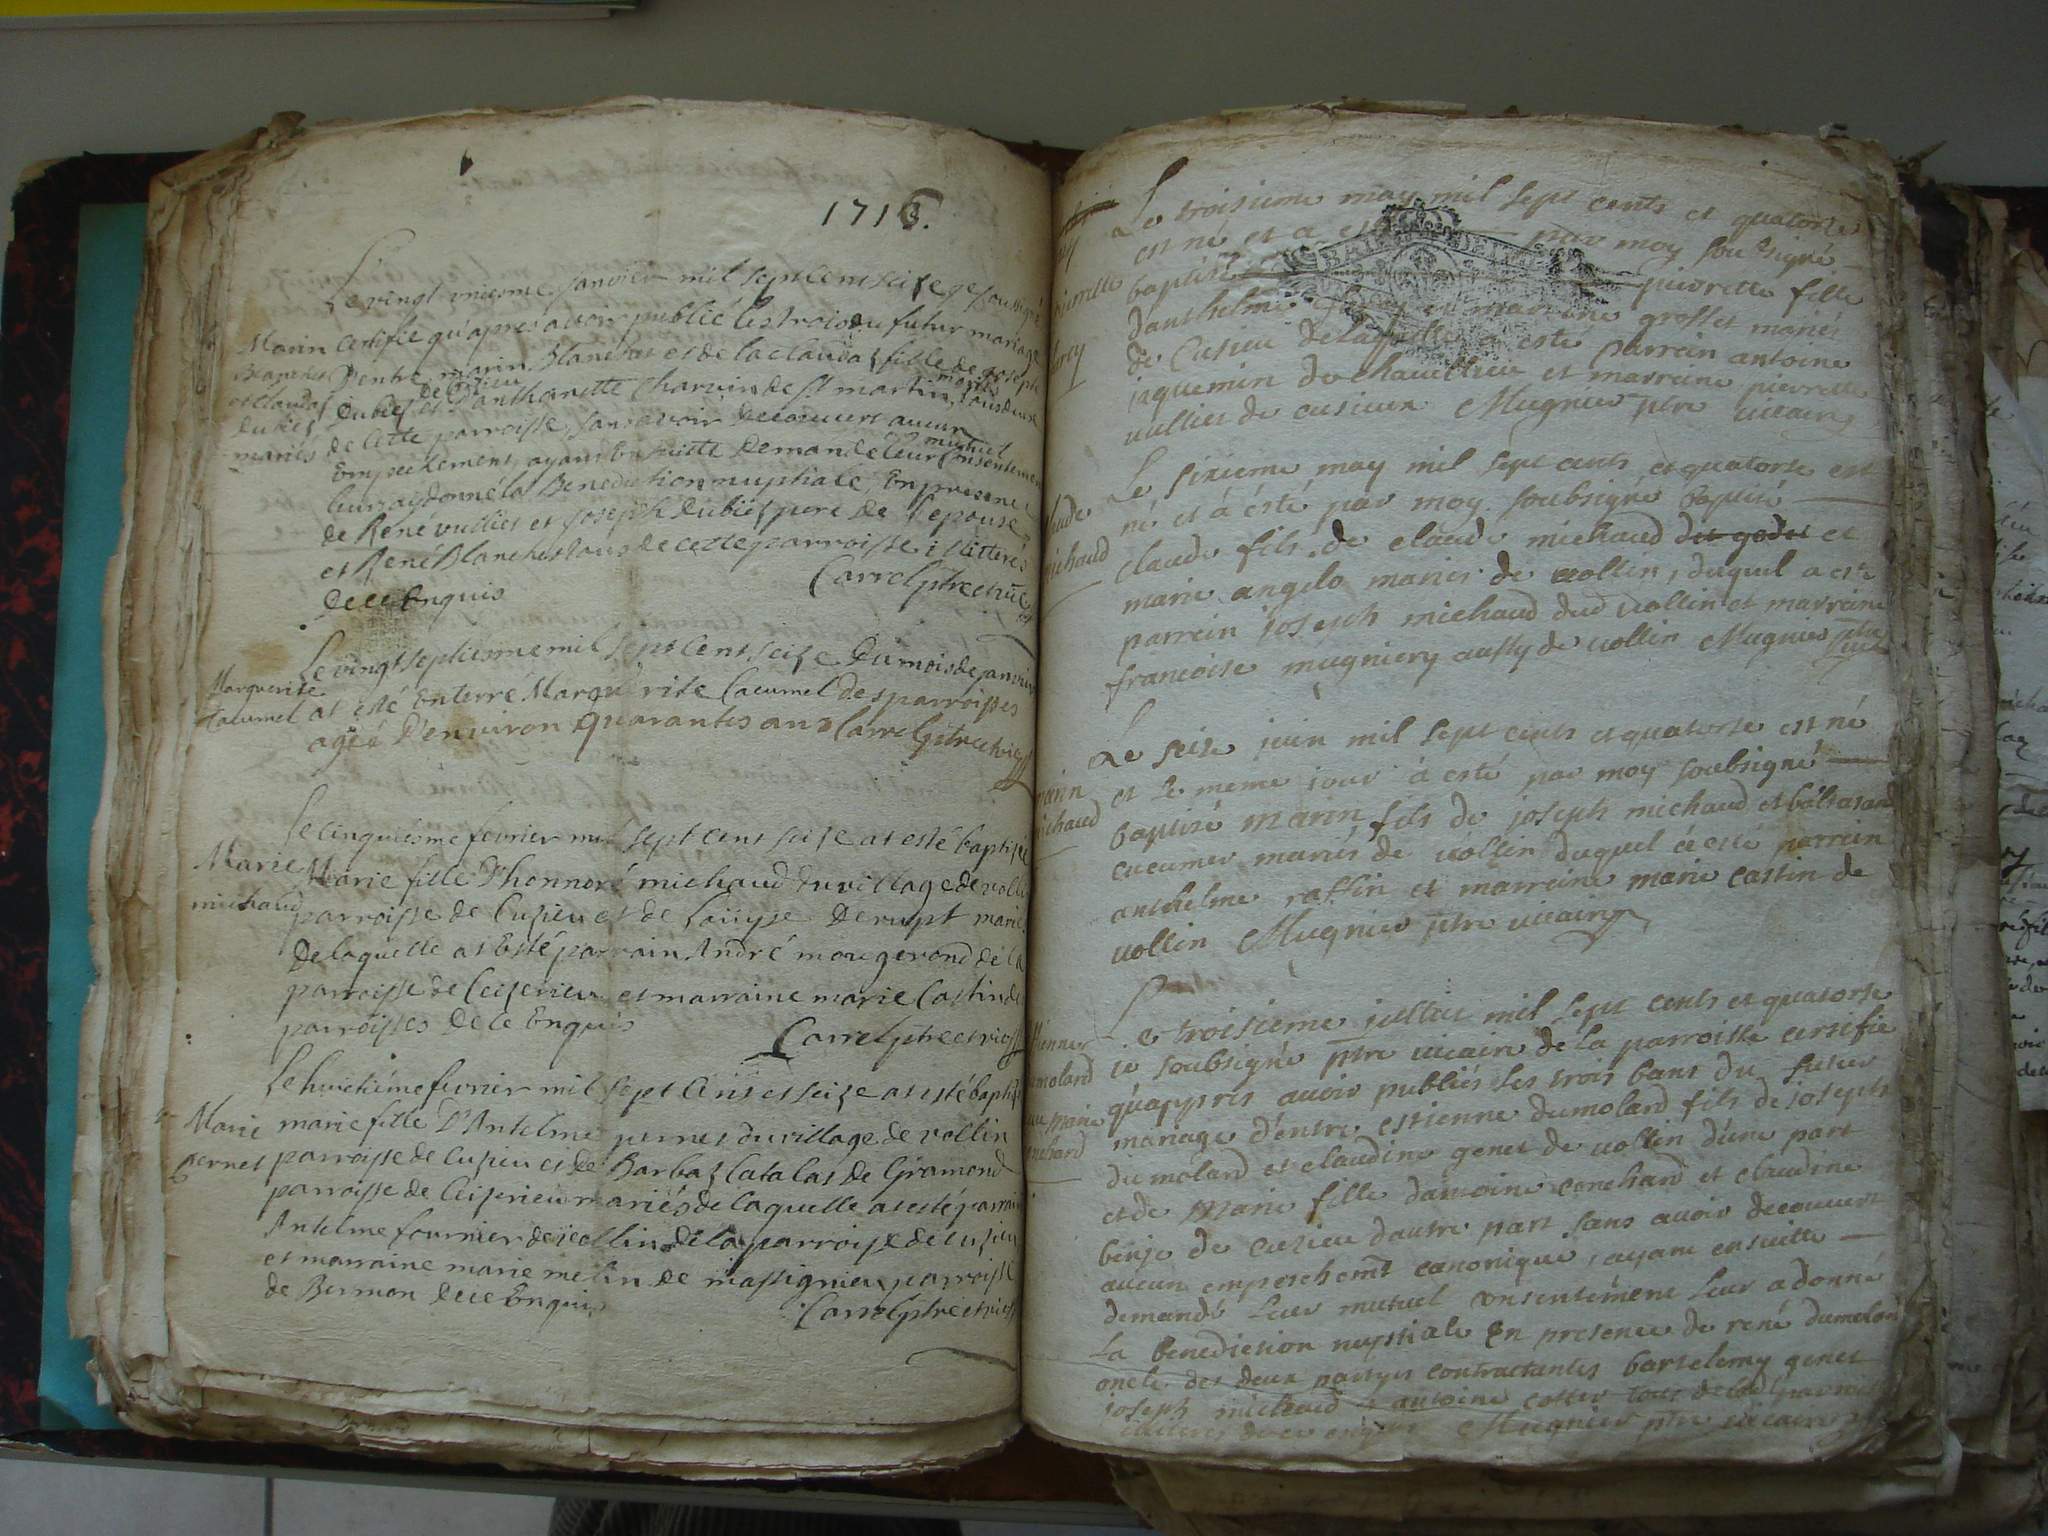 1716.
Le vingt uniesme janvier mil sept cent seize je soussigné
Marin certifie qu'apres avoir publié les trois du futur mariage
Blanchet d'entre marin Blanchet et de la claudaz fille de joseph
et claudaz dubiez et d'anthanette Charvin de St martin, tous deux
de Cusieu mariés
dubiez
mariés de cette parroisse, sans avoir decouvert aucun
Empechement, ayant Ensuitte demandé leur mutuel Consentement
leur ay donné la Benediction nuptiale, En presence
de René vulliet et joseph dubiez pere de l'epouse
et René Blanchet tous de cette parroisse illitterés
de ce Enquis Carrel ptre et vic
Le vingt septiesme mil sept cent seize du mois de janvier
Marguerite
Cacumel at esté Enterré Marguerite Cacumel des parroisses
agée d'environ quarantes ans Carrel ptre et vic
Le cinquiesme fevrier mil sept cent seize at esté baptizé
Marie Marie fille d'honnoré michaud du village de vollin
michaud parroisse de Cuzieu et de Louyse derupt mariés
de laquelle at Esté parrain André mongerond de la
parroisse de Ceizerieu et marraine marie Castin de
parroisses de ce Enquis Carrel ptre et vic
Le huictième fevrier mil sept Cent et seize at esté baptizé
Marie marie fille d'Antelme pernet du village de vollin
pernet parroisse de cuzieu et de Barbaz Catalas de Gramond
parroisse de Ceizerieu mariés de laquelle at esté parrain
Antelme fournier de vollin de la parroisse de cuzieu
et marraine marie melin de massignieu parroisse
de Bermon de ce Enquis
Carrel ptre et vic
Le troisieme may mil sept cents et quatorse
est né et a esté par moy soubsigné
baptisé pierrette fille
danthelme et mariés
de Cusieu de laquelle a esté parrein antoine
jaquemin de et marreine pierrette
vulliet de cusieu Mugnier ptre vicaire
Le sixieme may mil sept cents et quatorse est
né et à ésté par moy soubsigné baptisé
michaud claude fils de claude michaud dit godet et
marie angelo mariés de vollin, duquel a esté
parrein joseph michaud dud vollin et marreine
francoise mugniery aussy de vollin Mugnier ptre vic
Le seise juin mil sept cents et quatorse est né
marin et le meme jour à esté par moy soubsigné
michaud baptisé marin fils de joseph michaud et
cucumer mariés de vollin duquel à esté parrein
anthelme raffin et marreine marie castin de
vollin Mugnier ptre vicaire
Le troisième juillet mil sept cents et quatorse
je soubsigné ptre vicaire de la parroisse certifie
dumolard qu'appres avoir publiés les trois bans du futur
mariage d'entre estienne dumolard fils de joseph
dumolard et claudine genet de vollin d'une part
et de Marie fille d'antoine conchard et claudine
berje de cuzieu dautre part sans avoir decouvert
aucun empeschemt canonique, ayant ensuitte
demandé leur mutuel consentement leur a donné
la benediction nuptiale En presence de rené dumolard
oncle des deux partyes contractantes bartelemy genet
joseph michaud antoine cottet tous de lad parroisse
illiteres de ce enquis Mugnier ptre vicaire